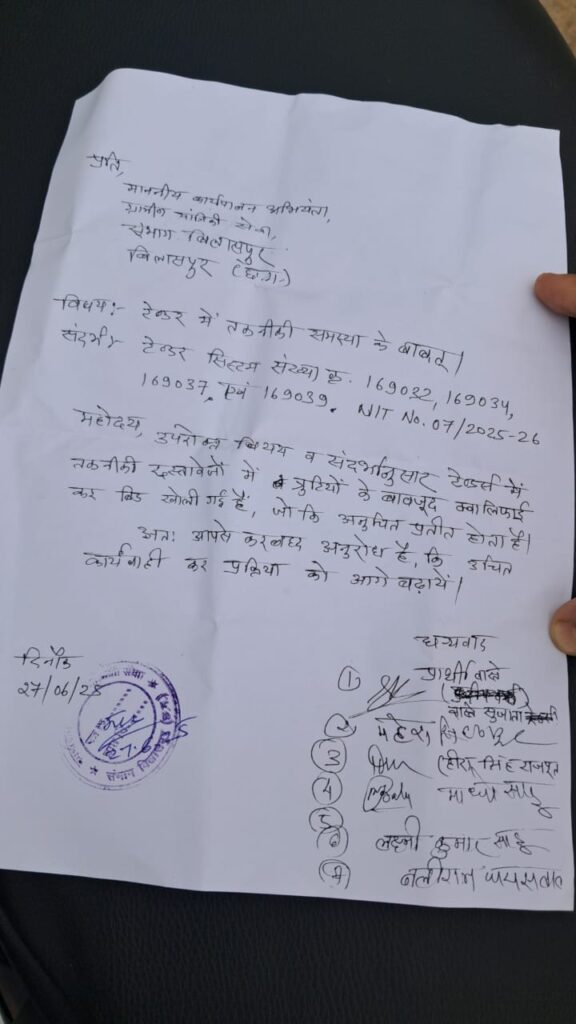 प्रति,
माननीय कार्यपालन अभियंता,
ग्रामीण यांत्रिकी सेवा,
संभाग बिलासपुर
बिलासपुर (छ.ग.)
विषय:- टेन्डर में तकनीकी समस्या के बावत्।
संदर्भ:- टेन्डर सिस्टम संख्या क्र. 169032, 169034,
169037, एवं 169039. NIT No. 07/2025-26
महोदय, उपरोक्त विषय व संदर्भानुसार टेन्डर्स में
तकनीकी दस्तावेजों में त्रुटियों के बावजूद क्वालिफाई
कर बिड खोली गई हैं, जो कि अनुचित प्रतीत होता है।
अतः आपसे करबध्द अनुरोध है, कि उचित
कार्यवाही कर प्रक्रिया को आगे बढ़ायें।
धन्यवाद
दिनाँक
27/06/25
प्रार्थी
1
सुजाता
2 महेश
3 हीरा सिंह राजपूत
4 माधो साहू
5
6 लक्ष्मी कुमार साहू
7 जयसवाल
संभाग